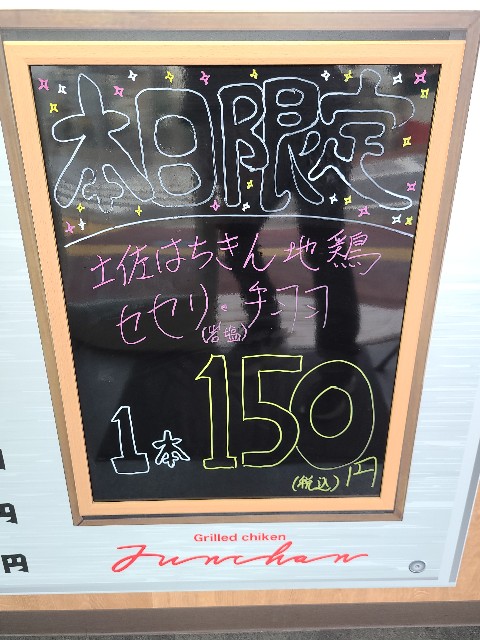 本日限定
土佐はちきん地鶏
セセリ・チココ
(岩塩)
1本 150円
(税込)
Grilled chiken
Junchan
円
円